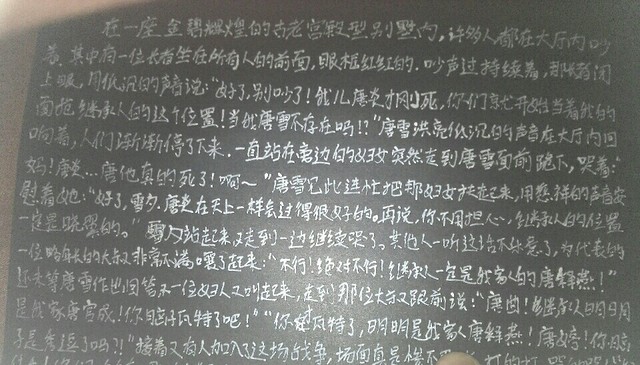 在一座金碧辉煌的古老宫殿型别墅内，许多人都在大厅内吵
着，其中有一位长者坐在所有人的前面，眼框红红的。吵声过持续着，那长者闭
上眼，用低沉的声音说：“好了，别吵了！我儿唐炎才刚死，你们就忙开始当着我的
面抢继承人的这个位置！当我唐雪不存在吗！？”唐雪洪亮低沉的声音在大厅内回
响着，人们渐渐停了下来．一直站在旁边的妇女突然走到唐雪面前跪下，哭着：“
妈！唐炎…唐他真的死了！啊～”唐雪见此连忙把那妇女扶起来，用慈祥的声音安
慰着她：“好了，雪夕，唐炎在天上一样会过得很好的。再说，你不用担心，继承人的位置
一定是晓墨的。”雪夕站起来又走到一边继续哭了。其他人一听这话不乐意了，为代表的
一位略年长的大叔非常不满嚷了起来：“不行！绝对不行！继承人一定是我家人的唐
还未等唐雪作出回答，一位妇人又叫起来，走到那位大叔跟前说：“唐曲！继承人明明
是我家唐宫成！你脑子瓦特了吧！”“你才瓦特了，明明是我家唐
子是秀逗了吗？！”接着又有人加入了这场战争，场面真是惨不